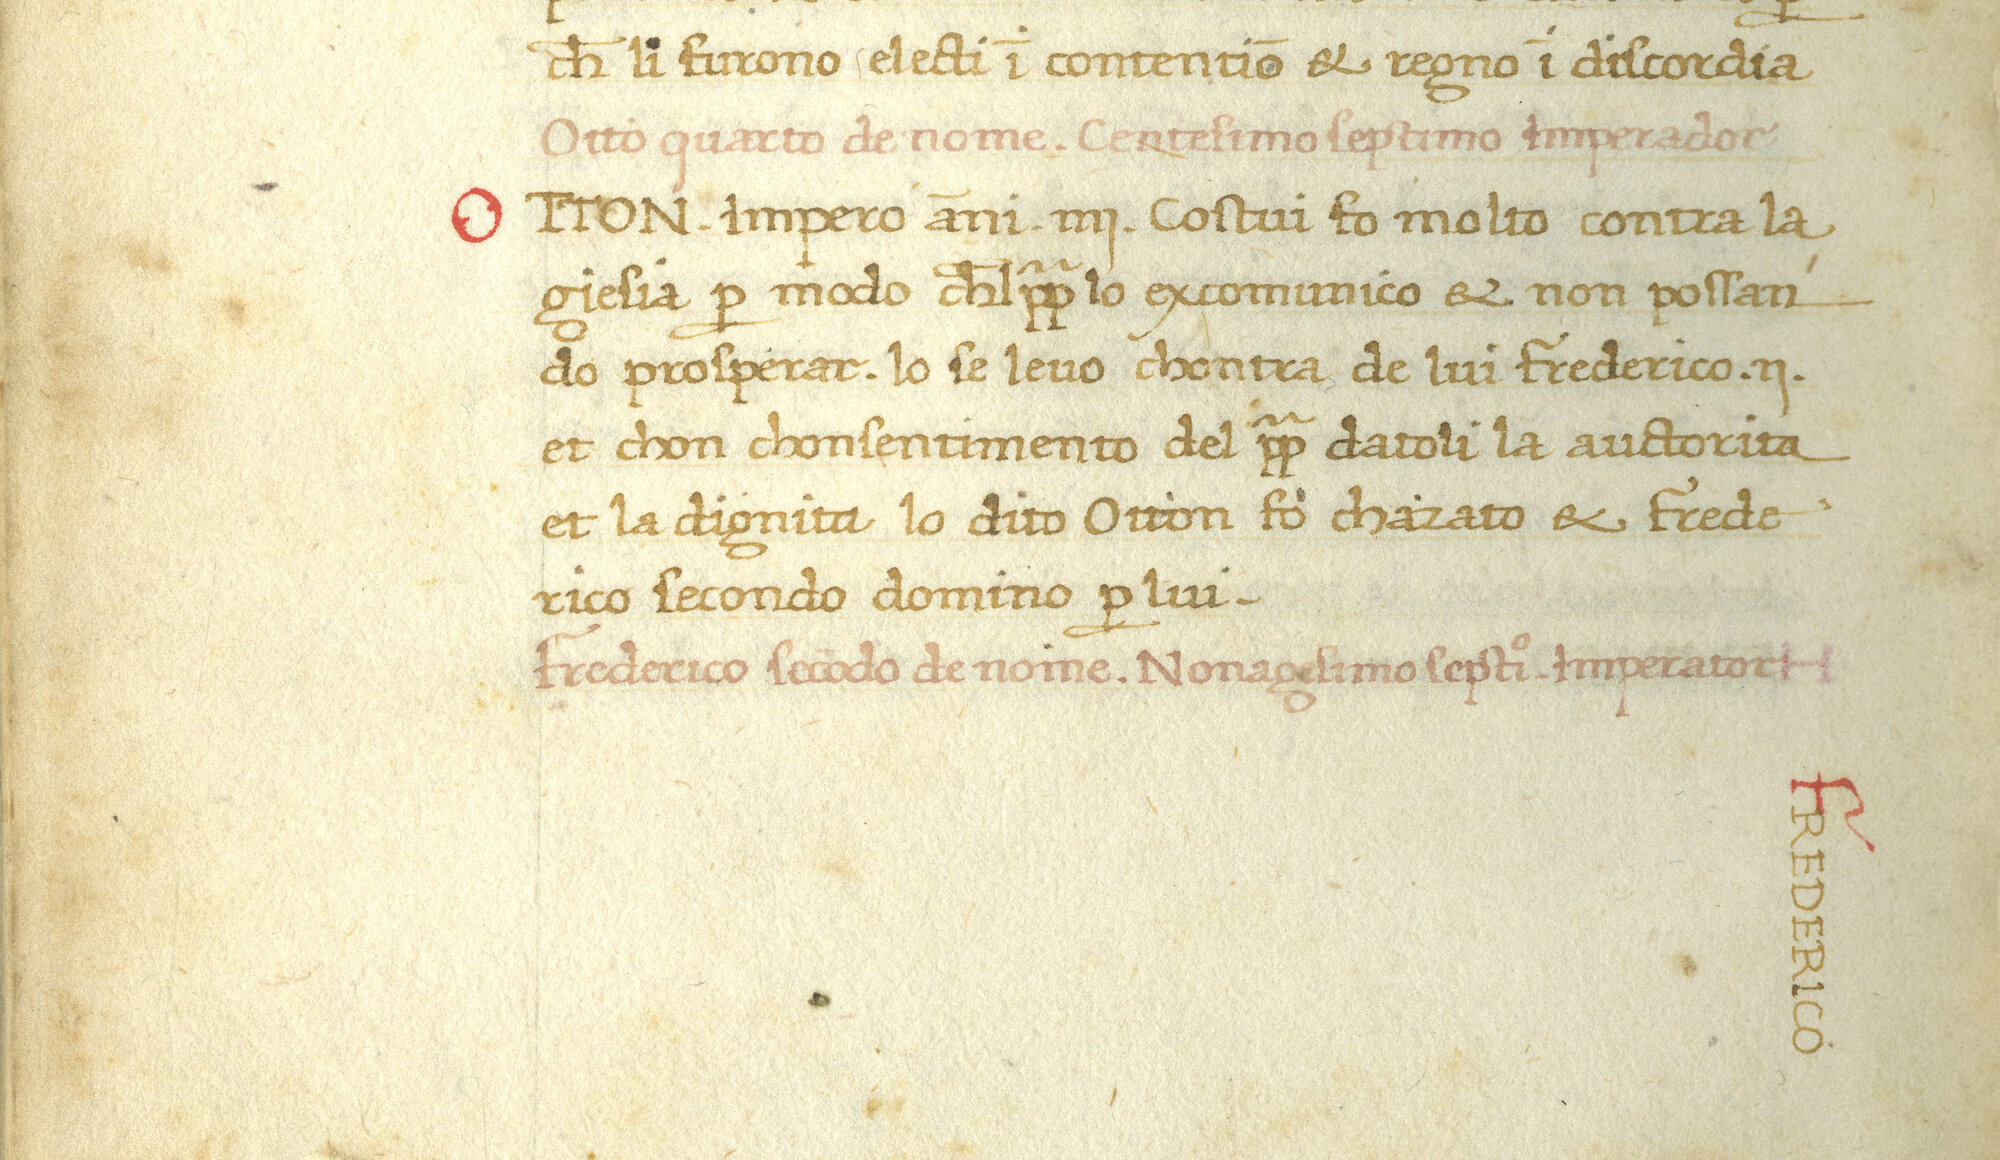 ch̄ li furono electi ī contentiō & regno ī discordia
Otto quarto de nome. Centesimo septimo Imperador
OTTON. Impero āni. iiij. Costui fo molto contra la
giesia ꝑ modo ch̄l pp̃ lo excomunico & non possan
do prosperar. lo se leuo chontra de lui Frederico. ij.
et chon chonsentimento del pp̃ datoli la auctorita
et la dignita lo dito Otton fo chazato & Frede
rico secondo domino ꝑ lui.
Frederico secōdo de nome. Nonagesimo septī⁰. Imperator
FREDERICO